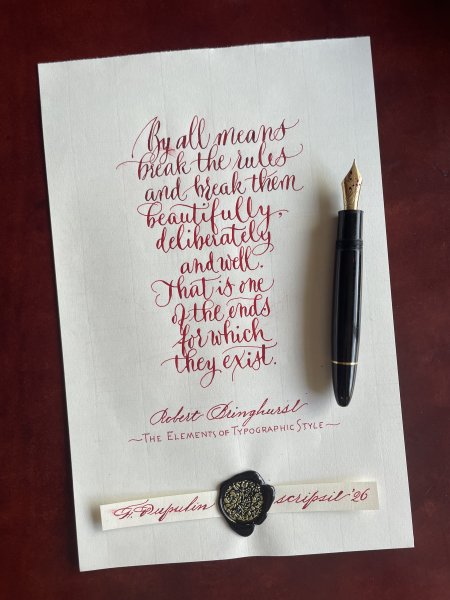 By all means
break the rules
and break them
beautifully,
deliberately
and well.
That is one
of the ends
for which
they exist.
Robert Bringhurst
~The Elements of Typographic Style~
scripsit '26